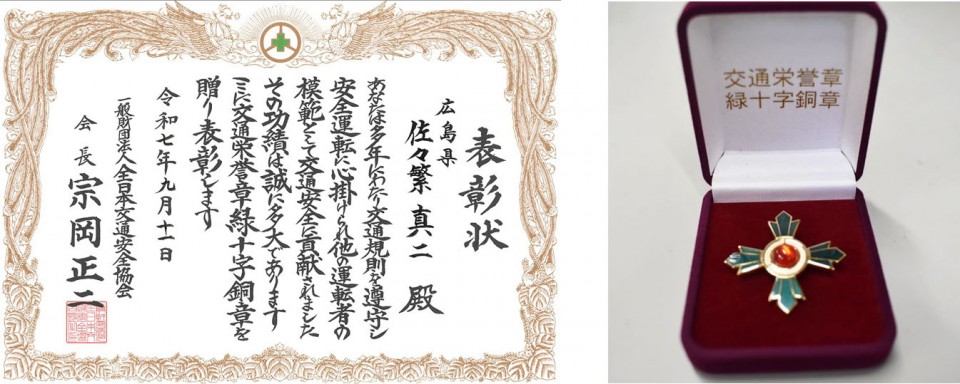 表彰状
広島県
佐々繁真二 殿
あなたは多年にわたり交通規則を遵守し
安全運転に心掛けられ他の運転者の
模範として交通安全に貢献されました
その功績は誠に多大であります
ここに交通栄誉章緑十字銅章を
贈り表彰します
令和七年九月十一日
一般財団法人全日本交通安全協会
会長 宗岡正二
交通栄誉章
緑十字銅章